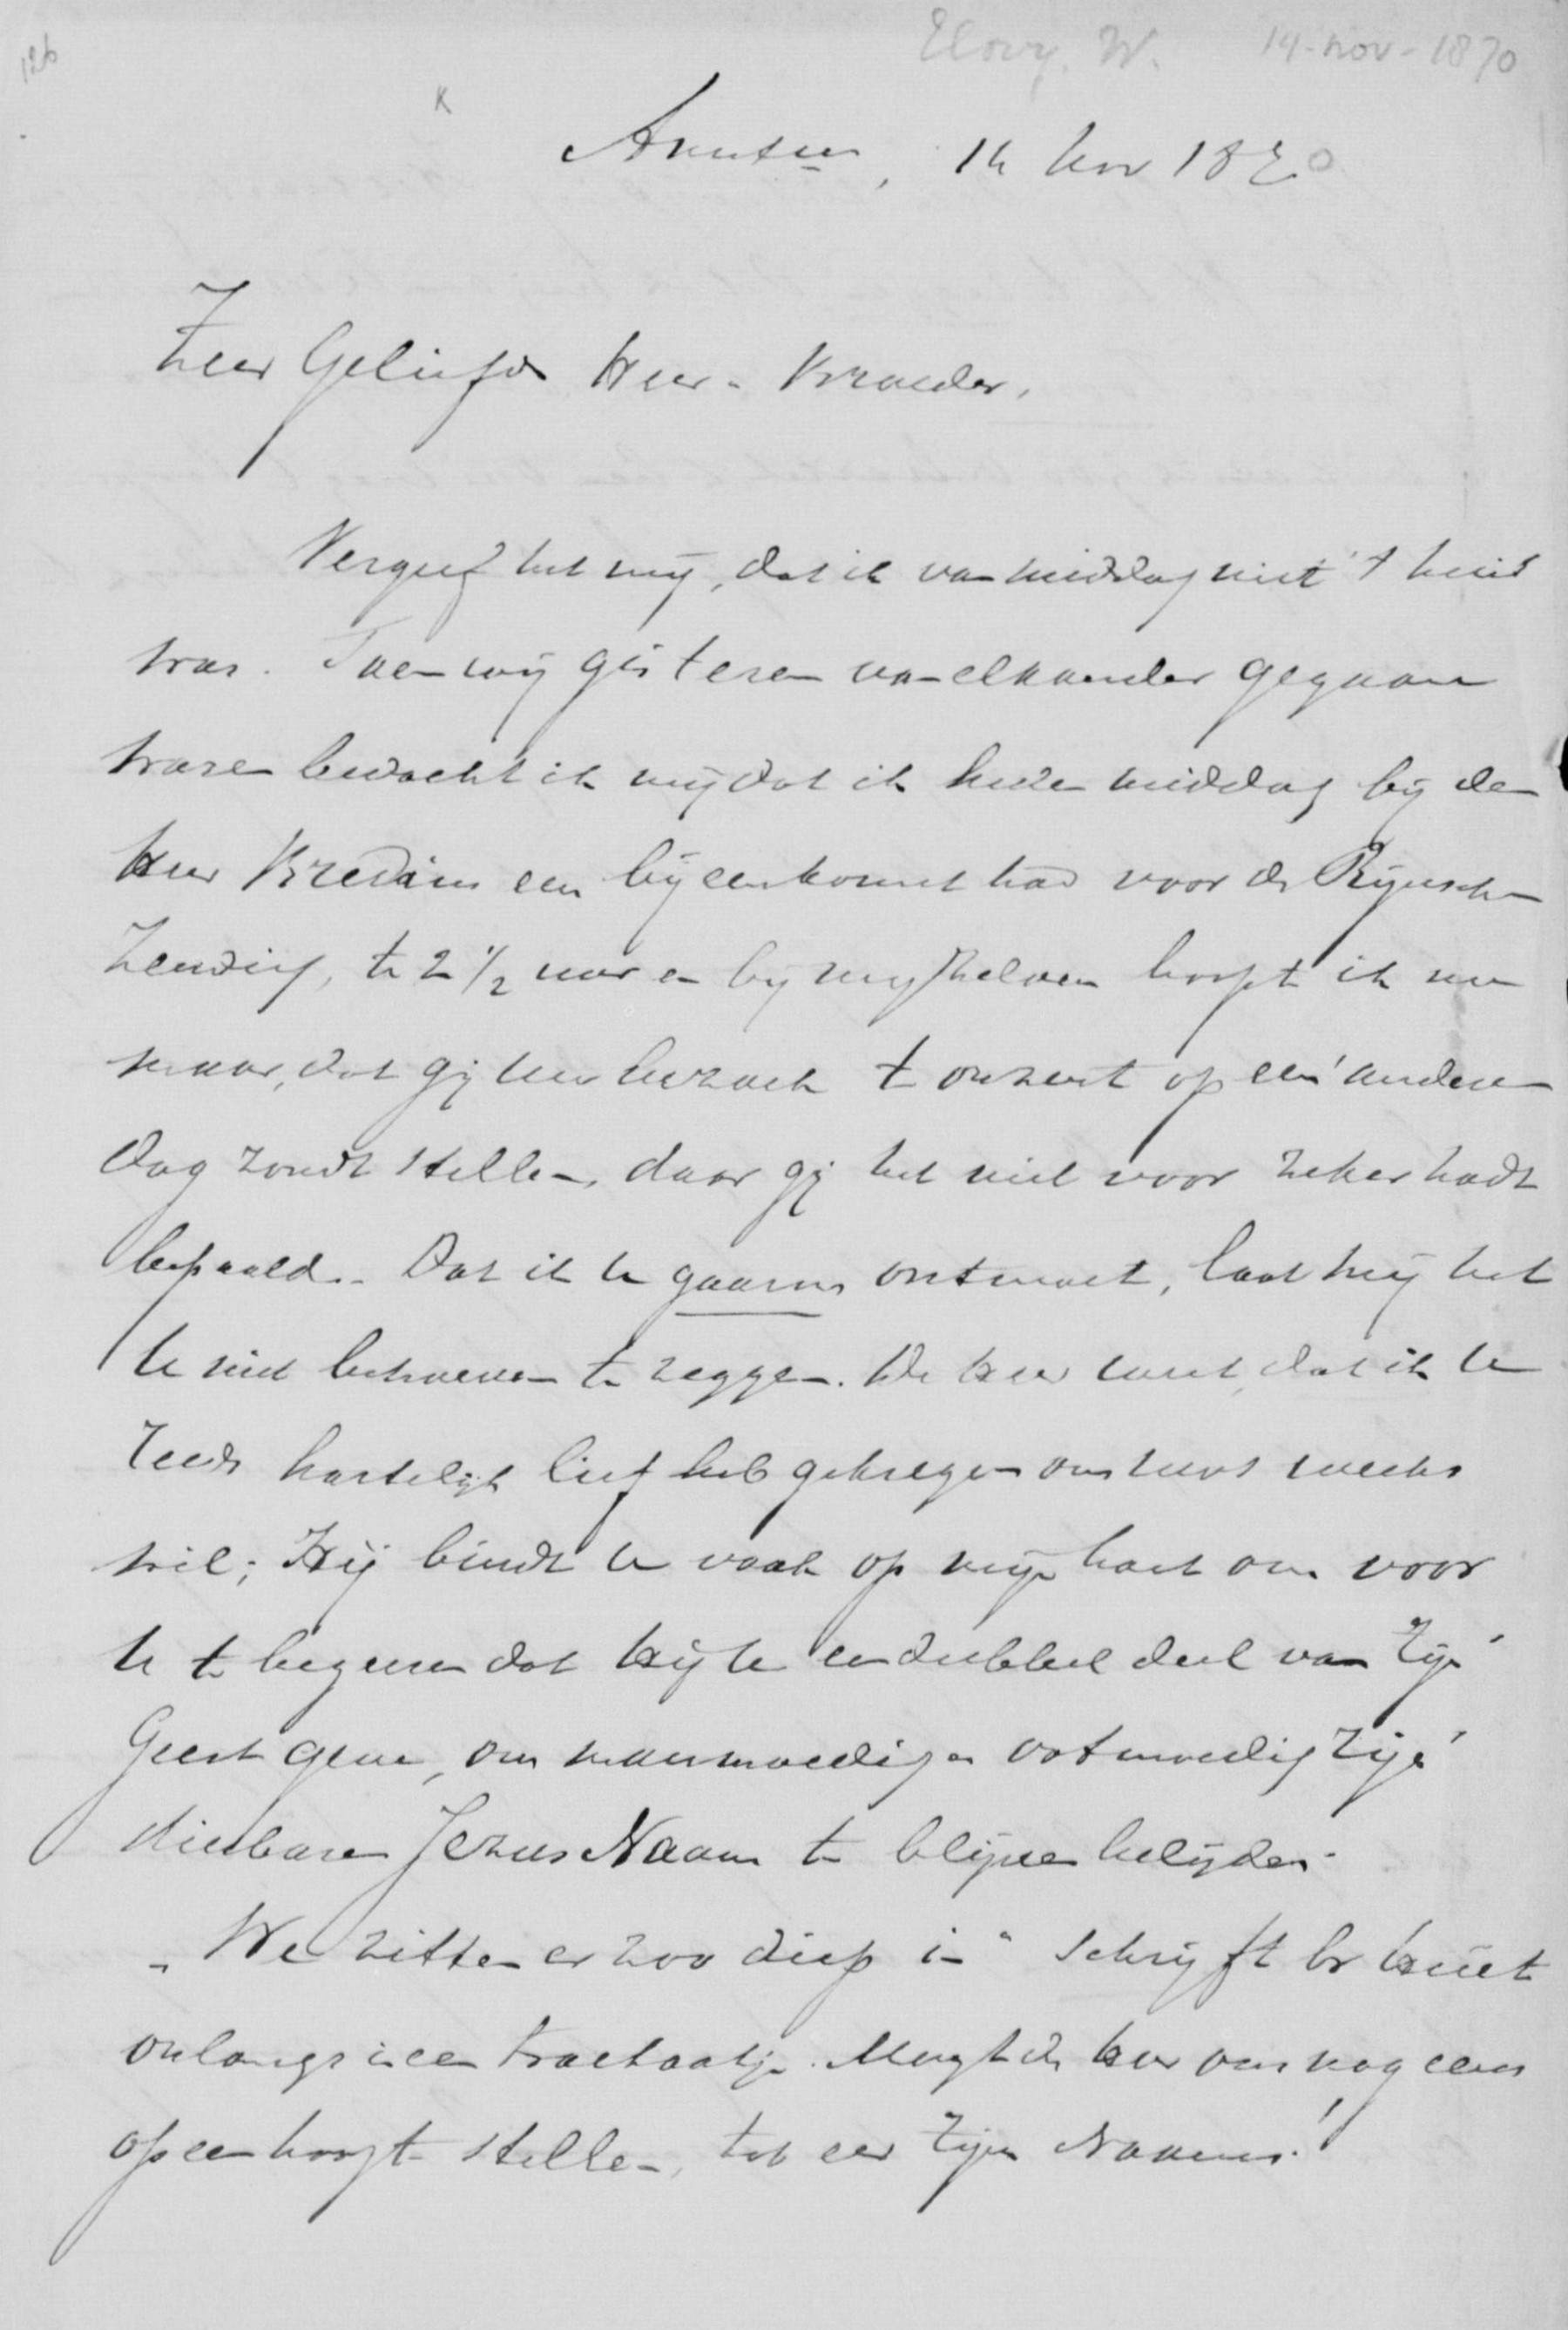 126
Elout, W. 14-nov-1870
K
Amstm, 14 Nov 1870
Zeer Geliefde Heer- Broeder,
Vergeef het mij, dat ik van middag niet 't huis
was. Toen wij gisteren van elkander gegaan
waren bedacht ik mij dat ik heden middag bij den
Heer Bredius een bijeenkomst had voor de Rijnsche
Zending, te 2 1/2 uur en bij mijzelven hoopt ik nu
maar, dat gij uw bezoek t onzent op een' anderen
Dag zoudt stellen, daar gij het niet voor zeker hadt
bepaald. Dat ik U gaarne ontmoet, laat mij het
U niet behoeven te zeggen. De Heer weet, dat ik U
reeds hartelijk lief heb gekregen om uws werks
wil; Hij bindt U vaak op mijn hart om voor
U te begeeren dat Hij U een dubbel deel van Zijn'
Geest geve, om manmoedig en ootmoedig Zijn'
dierbaren Jezus Naam te blijven belijden.
"We zitten er zoo diep in" schrijft br Huët
onlangs in een tractaatje. Mogt de Heer ons nog eens
op een hoogte stellen, tot eer Zijns Naams!